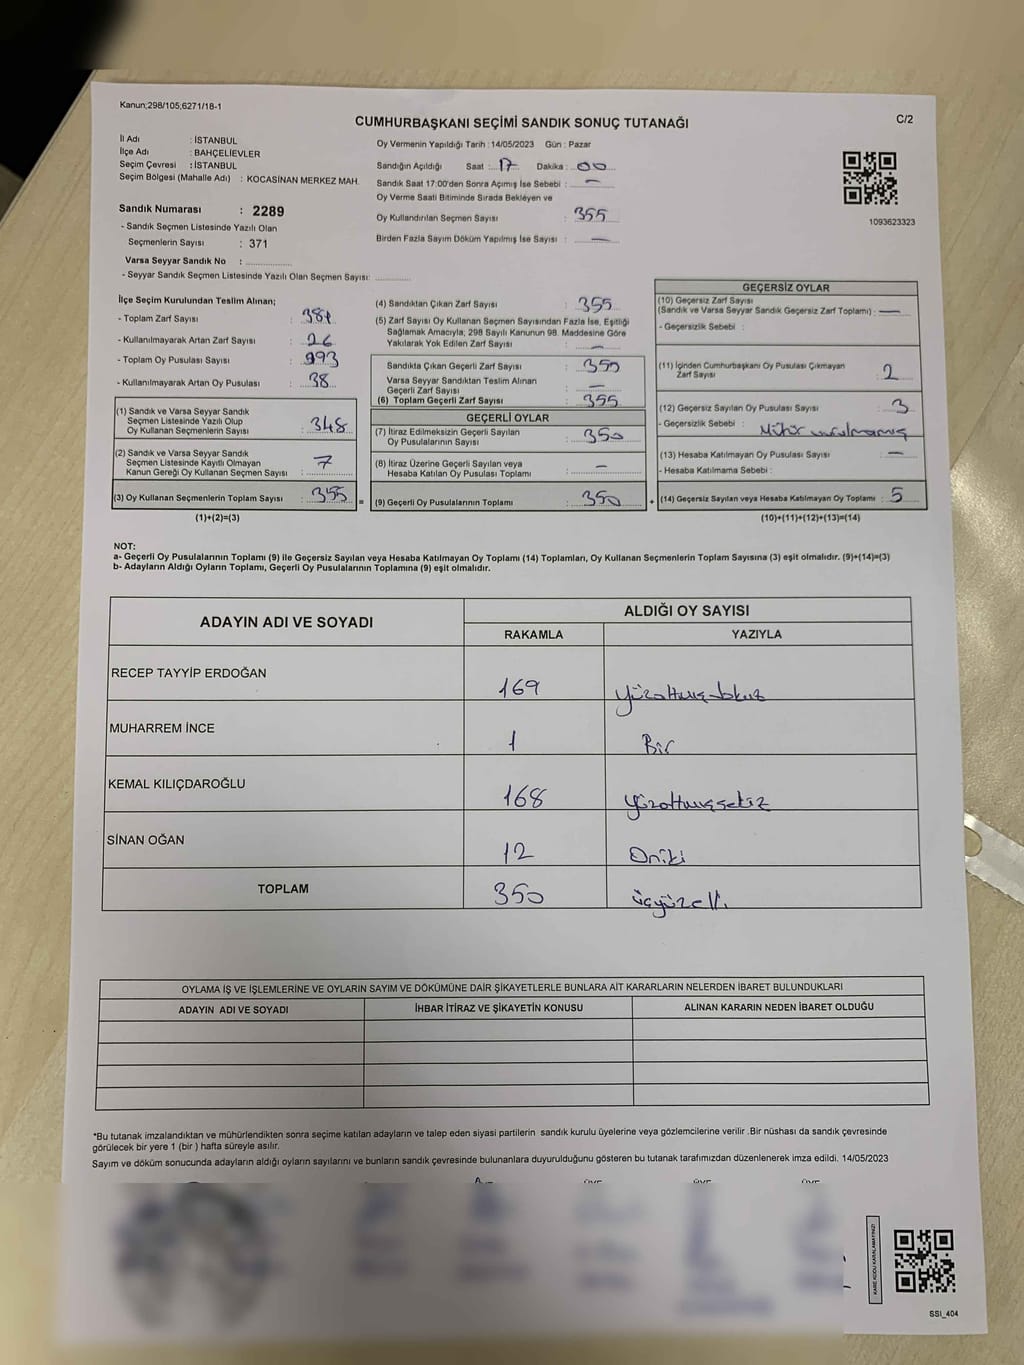 Kanun;298/105;6271/18-1
CUMHURBAŞKANI SEÇİMİ SANDIK SONUÇ TUTANAĞI
C/2
İl Adı : İSTANBUL
İlçe Adı : BAHÇELİEVLER
Seçim Çevresi : İSTANBUL
Seçim Bölgesi (Mahalle Adı) : KOCASİNAN MERKEZ MAH.
Sandık Numarası : 2289
- Sandık Seçmen Listesinde Yazılı Olan
Seçmenlerin Sayısı : 371
Varsa Seyyar Sandık No :
- Seyyar Sandık Seçmen Listesinde Yazılı Olan Seçmen Sayısı:
Oy Vermenin Yapıldığı Tarih : 14/05/2023 Gün : Pazar
Sandığın Açıldığı Saat : 17 Dakika : 00
Sandık Saat 17:00'den Sonra Açımış İse Sebebi : —
Oy Verme Saati Bitiminde Sırada Bekleyen ve
Oy Kullandırılan Seçmen Sayısı : 355
Birden Fazla Sayım Döküm Yapılmış İse Sayısı : —
1093623323
İlçe Seçim Kurulundan Teslim Alınan;
- Toplam Zarf Sayısı :
- Kullanılmayarak Artan Zarf Sayısı : 26
- Toplam Oy Pusulası Sayısı :
- Kullanılmayarak Artan Oy Pusulası : 38
(1) Sandık ve Varsa Seyyar Sandık
Seçmen Listesinde Yazılı Olup
Oy Kullanan Seçmenlerin Sayısı : 348
(2) Sandık ve Varsa Seyyar Sandık
Seçmen Listesinde Kayıtlı Olmayan
Kanun Gereği Oy Kullanan Seçmen Sayısı : 7
(3) Oy Kullanan Seçmenlerin Toplam Sayısı : 355
(1)+(2)=(3)
(4) Sandıktan Çıkan Zarf Sayısı : 355
(5) Zarf Sayısı Oy Kullanan Seçmen Sayısından Fazla İse, Eşitliği
Sağlamak Amacıyla, 298 Sayılı Kanunun 98. Maddesine Göre
Yakılarak Yok Edilen Zarf Sayısı : —
Sandıkta Çıkan Geçerli Zarf Sayısı : 350
Varsa Seyyar Sandıktan Teslim Alınan
Geçerli Zarf Sayısı : —
(6) Toplam Geçerli Zarf Sayısı : 355
GEÇERLİ OYLAR
(7) İtiraz Edilmeksizin Geçerli Sayılan
Oy Pusulalarının Sayısı : 350
(8) İtiraz Üzerine Geçerli Sayılan veya
Hesaba Katılan Oy Pusulası Toplamı : —
= (9) Geçerli Oy Pusulalarının Toplamı : 350 +
GEÇERSİZ OYLAR
(10) Geçersiz Zarf Sayısı
(Sandık ve Varsa Seyyar Sandık Geçersiz Zarf Toplamı) : —
- Geçersizlik Sebebi :
(11) İçinden Cumhurbaşkanı Oy Pusulası Çıkmayan
Zarf Sayısı : 2
(12) Geçersiz Sayılan Oy Pusulası Sayısı : 3
- Geçersizlik Sebebi : Mühür vurulmamış
(13) Hesaba Katılmayan Oy Pusulası Sayısı : —
- Hesaba Katılmama Sebebi :
(14) Geçersiz Sayılan veya Hesaba Katılmayan Oy Toplamı : 5
(10)+(11)+(12)+(13)=(14)
NOT:
a- Geçerli Oy Pusulalarının Toplamı (9) ile Geçersiz Sayılan veya Hesaba Katılmayan Oy Toplamı (14) Toplamları, Oy Kullanan Seçmenlerin Toplam Sayısına (3) eşit olmalıdır. (9)+(14)=(3)
b- Adayların Aldığı Oyların Toplamı, Geçerli Oy Pusulalarının Toplamına (9) eşit olmalıdır.
ADAYIN ADI VE SOYADI ALDIĞI OY SAYISI
RAKAMLA YAZIYLA
RECEP TAYYİP ERDOĞAN 169 yüzaltmışdokuz
MUHARREM İNCE 1 Bir
KEMAL KILIÇDAROĞLU 168 yüzaltmışsekiz
SİNAN OĞAN 12 Oniki
TOPLAM 350 üçyüzelli
OYLAMA İŞ VE İŞLEMLERİNE VE OYLARIN SAYIM VE DÖKÜMÜNE DAİR ŞİKAYETLERLE BUNLARA AİT KARARLARIN NELERDEN İBARET BULUNDUKLARI
ADAYIN ADI VE SOYADI İHBAR İTİRAZ VE ŞİKAYETİN KONUSU ALINAN KARARIN NEDEN İBARET OLDUĞU
*Bu tutanak imzalandıktan ve mühürlendikten sonra seçime katılan adayların ve talep eden siyasi partilerin sandık kurulu üyelerine veya gözlemcilerine verilir .Bir nüshası da sandık çevresinde
görülecek bir yere 1 (bir ) hafta süreyle asılır.
Sayım ve döküm sonucunda adayların aldığı oyların sayılarını ve bunların sandık çevresinde bulunanlara duyurulduğunu gösteren bu tutanak tarafımızdan düzenlenerek imza edildi. 14/05/2023
KARE KODU KARALAMAYINIZ!
SSI_404